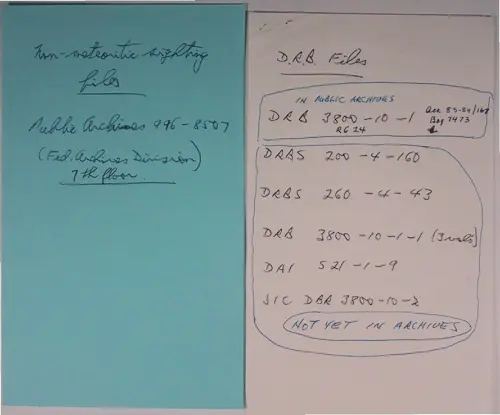 Non-meteoritic sighting
files
Public Archives 996-8507
(Fed. Archives Division)
7th floor.
D.R.B. Files
IN PUBLIC ARCHIVES
DRB 3800-10-1
RG 24
Acc 83-84/167
Box 7473
DRBS 200-4-160
DRBS 260-4-43
DRB 3800-10-1-1 (3 vols)
DAI 521-1-9
JIC DRB 3800-10-2
NOT YET IN ARCHIVES